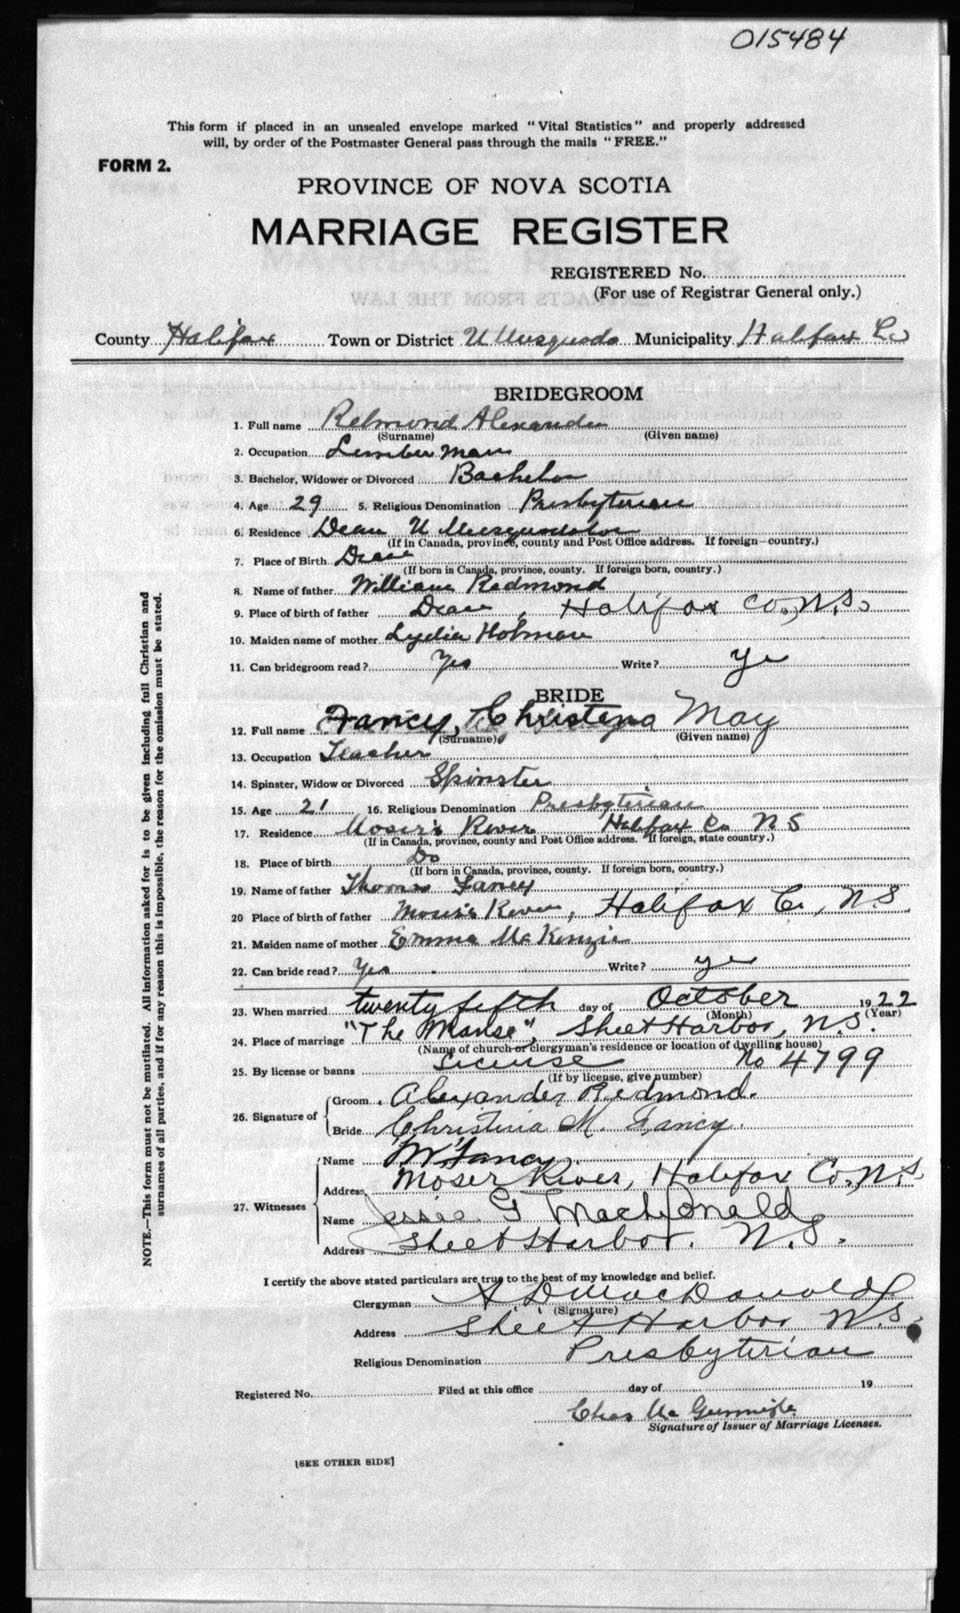 015484
This form if placed in an unsealed envelope marked "Vital Statistics" and properly addressed
will, by order of the Postmaster General pass through the mails "FREE."
FORM 2.
PROVINCE OF NOVA SCOTIA
MARRIAGE REGISTER
REGISTERED No.
(For use of Registrar General only.)
County Halifax Town or District U Musquodo Municipality Halifax Co
BRIDEGROOM
1. Full name Redmond Alexander
(Surname) (Given name)
2. Occupation Lumber Man
3. Bachelor, Widower or Divorced Bachelor
4. Age 29 5. Religious Denomination Presbyterian
6. Residence Dean U Musquodoboi
(If in Canada, province, county and Post Office address. If foreign—country.)
7. Place of Birth Dean
(If born in Canada, province, county. If foreign born, country.)
8. Name of father William Redmond
9. Place of birth of father Dean, Halifax Co., N.S.
10. Maiden name of mother Lydia Holman
11. Can bridegroom read? Yes Write? Ye
BRIDE
12. Full name Fancy, Christena May
(Surname) (Given name)
13. Occupation Teacher
14. Spinster, Widow or Divorced Spinster
15. Age 21 16. Religious Denomination Presbyterian
17. Residence Moser's River Halifax Co N S
(If in Canada, province, county and Post Office address. If foreign, state country.)
18. Place of birth Do
(If born in Canada, province, county. If foreign born, country.)
19. Name of father Thomas Fancy
20 Place of birth of father Moser's River, Halifax Co., N.S.
21. Maiden name of mother Emma McKenzie
22. Can bride read? Yes Write? ye
23. When married twenty fifth day of October 1922
(Month) (Year)
24. Place of marriage "The Manse", Sheet Harbor, N.S.
(Name of church or clergyman's residence or location of dwelling house)
25. By license or banns License No 4799
(If by license, give number)
26. Signature of Groom Alexander Redmond.
Bride Christina M. Fancy.
27. Witnesses Name Fancy
Address Moser River, Halifax Co., N.S.
Name Jessie G MacDonald
Address Sheet Harbor. N.S.
NOTE.—This form must not be mutilated. All information asked for is to be given including full Christian and
surnames of all parties, and if for any reason this is impossible, the reason for the omission must be stated.
I certify the above stated particulars are true to the best of my knowledge and belief.
Clergyman A D MacDonald
(Signature)
Address Sheet Harbor N.S.
Religious Denomination Presbyterian
Registered No. Filed at this office day of 19
Chas
Signature of Issuer of Marriage Licenses.
[SEE OTHER SIDE]